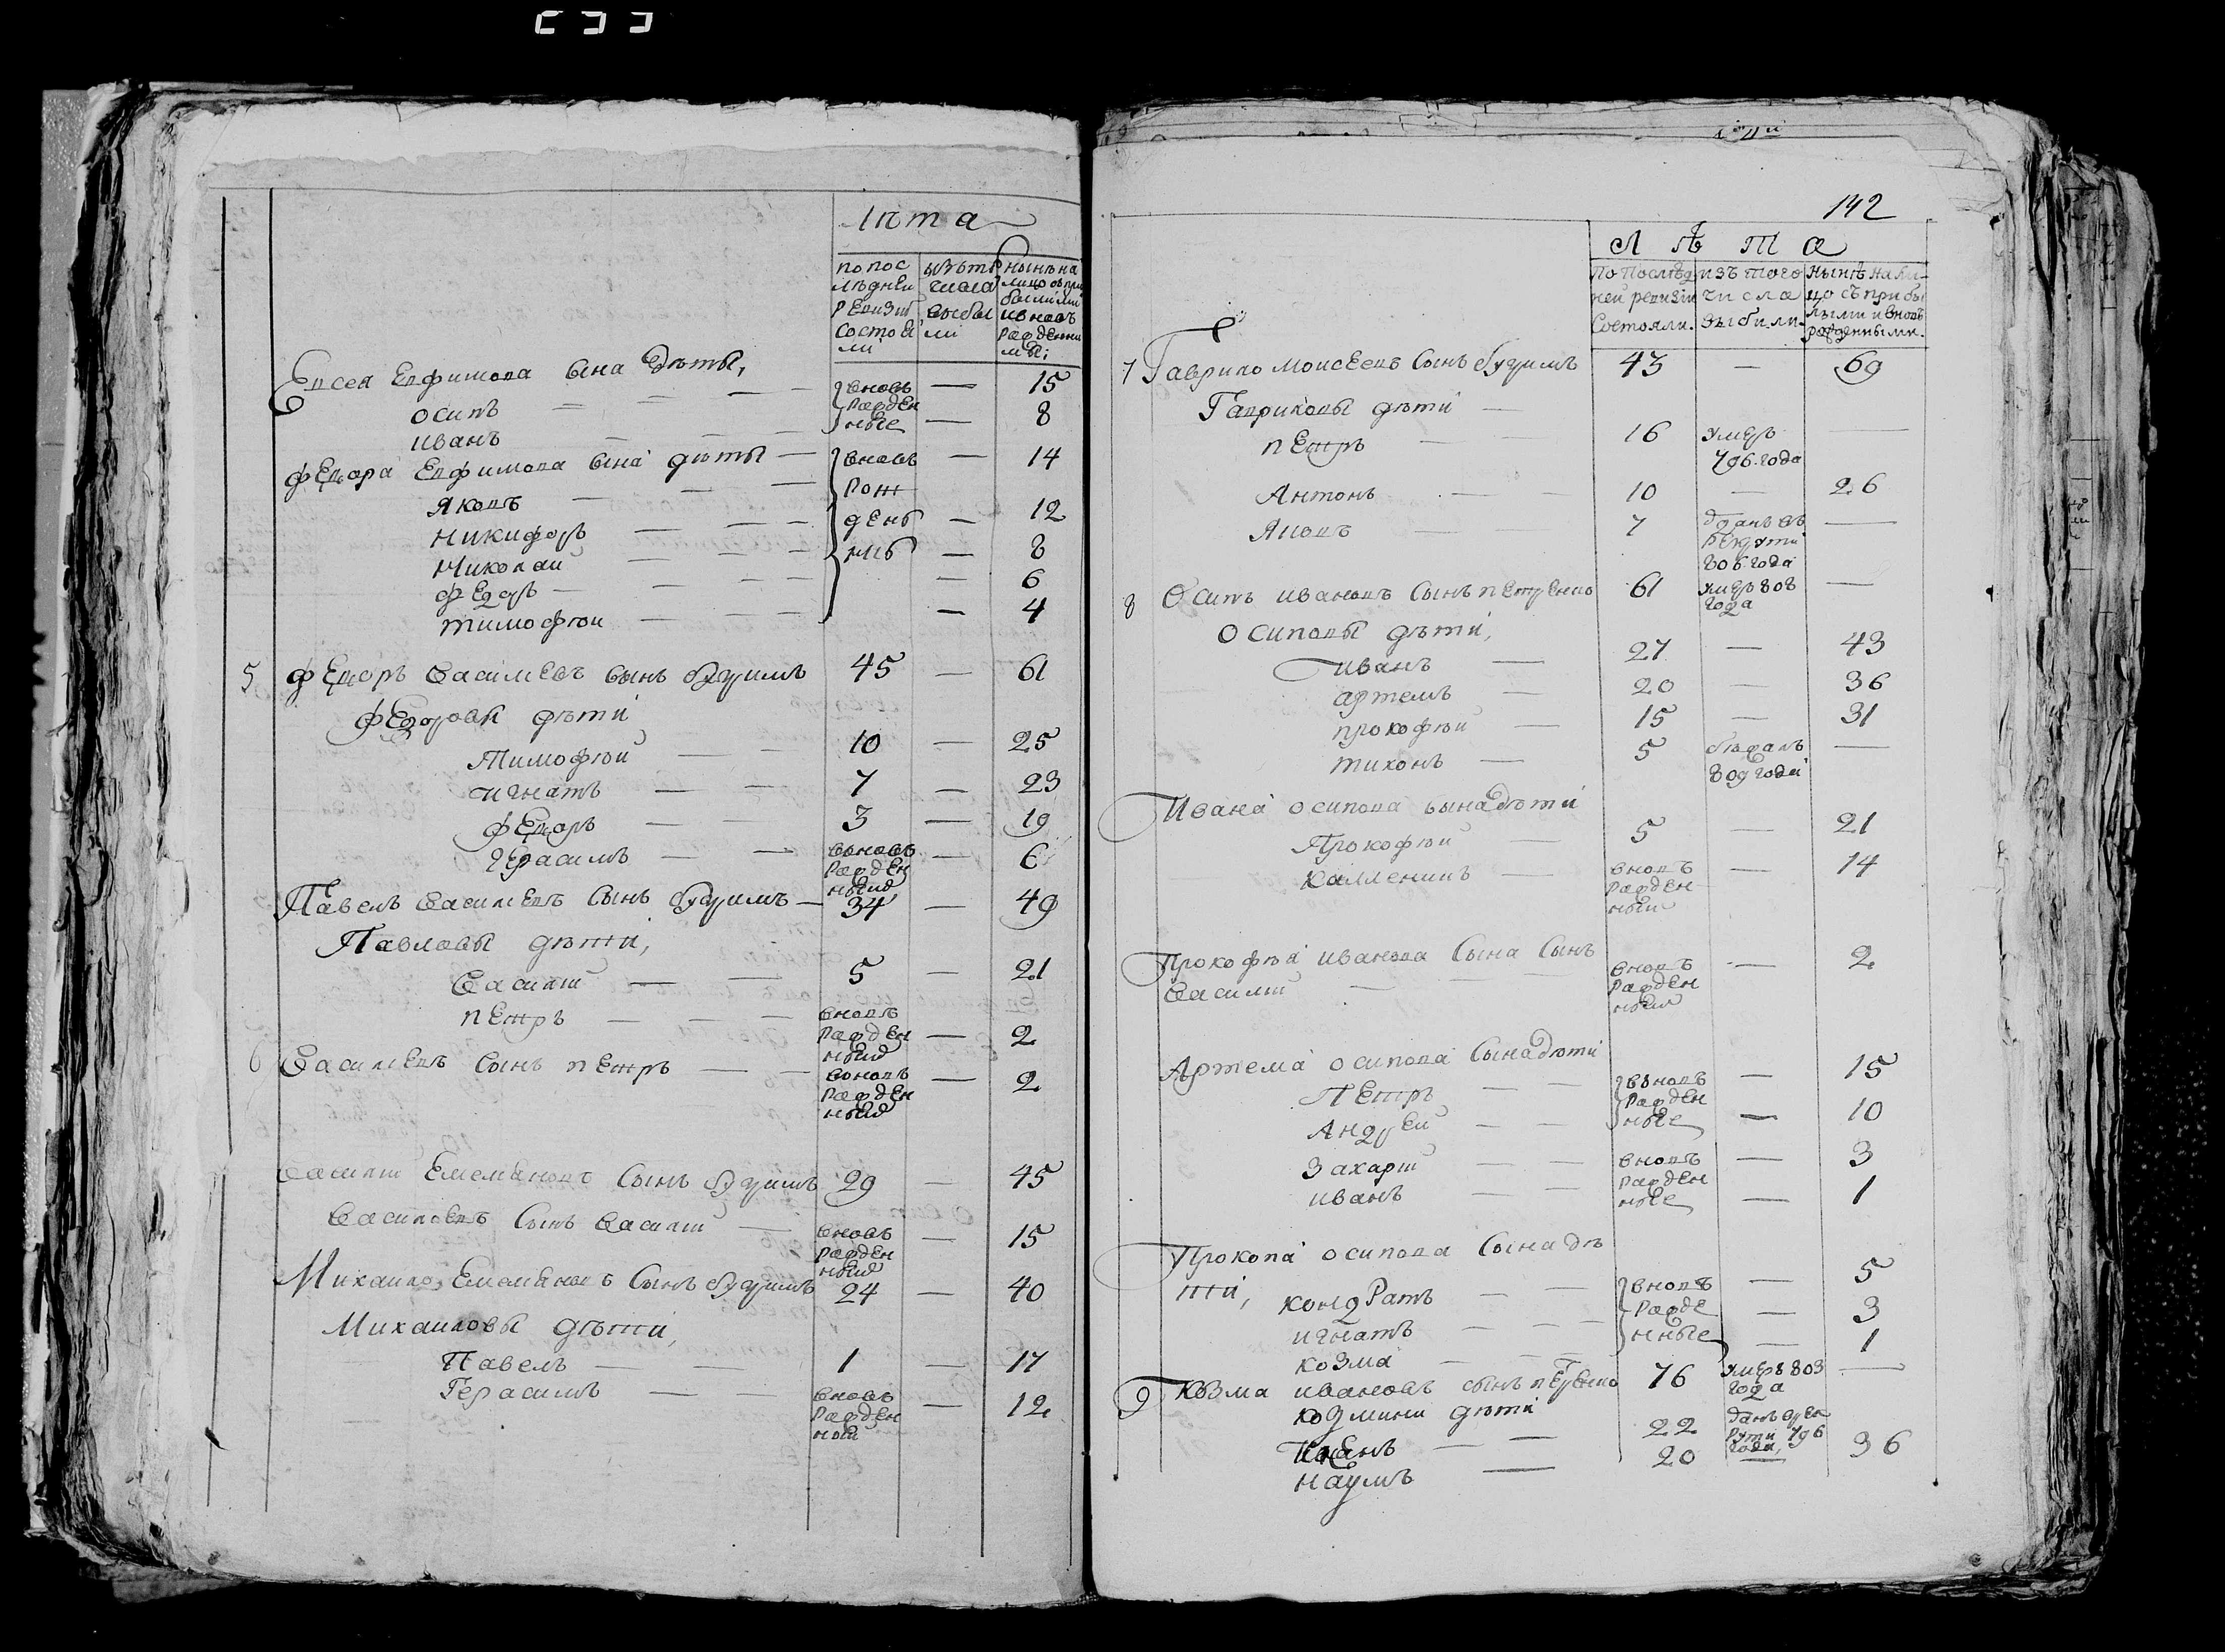 Лѣта
по пос
лѣдней
ревизіи
состоя
ли
изъ то
числа
выбы
ли
нынѣ на
лицо съ при
былыми
и вновь
рожденны
мы
Евсея Евфимова сына дѣты,
осипъ — вновь рожден ные — 15
иванъ — 8
федора Евфимова сына дѣты
Яковъ — вновь — 14
никифоръ — рож — 12
Николай — денъ — 8
Федоръ — ныѣ — 6
тимофѣи — 4
5 федоръ Василевъ сынъ 45 — 61
федоровы дѣти
Тимофѣй — 10 — 25
игнатъ — 7 — 23
федоръ — 3 — 19
герасимъ — вновь рожден ный — 6
Павелъ Василевъ Сынъ — 34 — 49
Павловы дѣти,
Василий — 5 — 21
петръ — вновь рожден ный — 2
6 Василевъ Сынъ петръ — вновь рожден ный — 2
Василий Емеляновъ Сынъ 29 — 45
Василевъ Сынъ Василий — вновь рожден ный — 15
Михаило Емеляновъ Сынъ 24 — 40
Михаиловы дѣти,
Павелъ — 1 — 17
Герасимъ — вновь рожден ный — 12
142
Л ѣ т а
По Послѣд
ней ревизіи
Состояли.
изъ того
числа
выбыли
нынѣ на ли-
цо съ прибы
лыми и вновь
рожденными.
7 Гаврило моисеевъ Сынъ 43 — 69
Гавриловы дѣти —
петръ — 16 умеръ 796 года —
Антонъ — 10 — 26
Яковъ — 7 отданъ въ рекруты 806 года —
8 Осипъ ивановъ Сынъ петренко 61 умеръ 808 года —
осиповы дѣти,
иванъ — 27 — 43
артемъ — 20 — 36
прокофѣй — 15 — 31
тихонъ — 5 бѣжалъ 809 года —
Ивана осипова сына дѣти
Прокофѣй — 5 — 21
калленикъ — вновь рожден ный — 14
Прокофѣя иванова Сына Сынъ
Василий — вновь рожден ный — 2
Артема осипова Сына дѣти
Петръ — вновь — 15
Андрей — рожден ные — 10
Захарий — вновь — 3
иванъ — рожден ные — 1
Прокопа осипова Сына дѣ
ти, кондратъ — вновь — 5
игнатъ — рожде — 3
козма — нные — 1
9 козма ивановъ сынъ петренко 76 умеръ 803 года —
козмины дѣти
Иванъ — 22 данъ в рек руты 796 года,
наумъ — 20 — 36